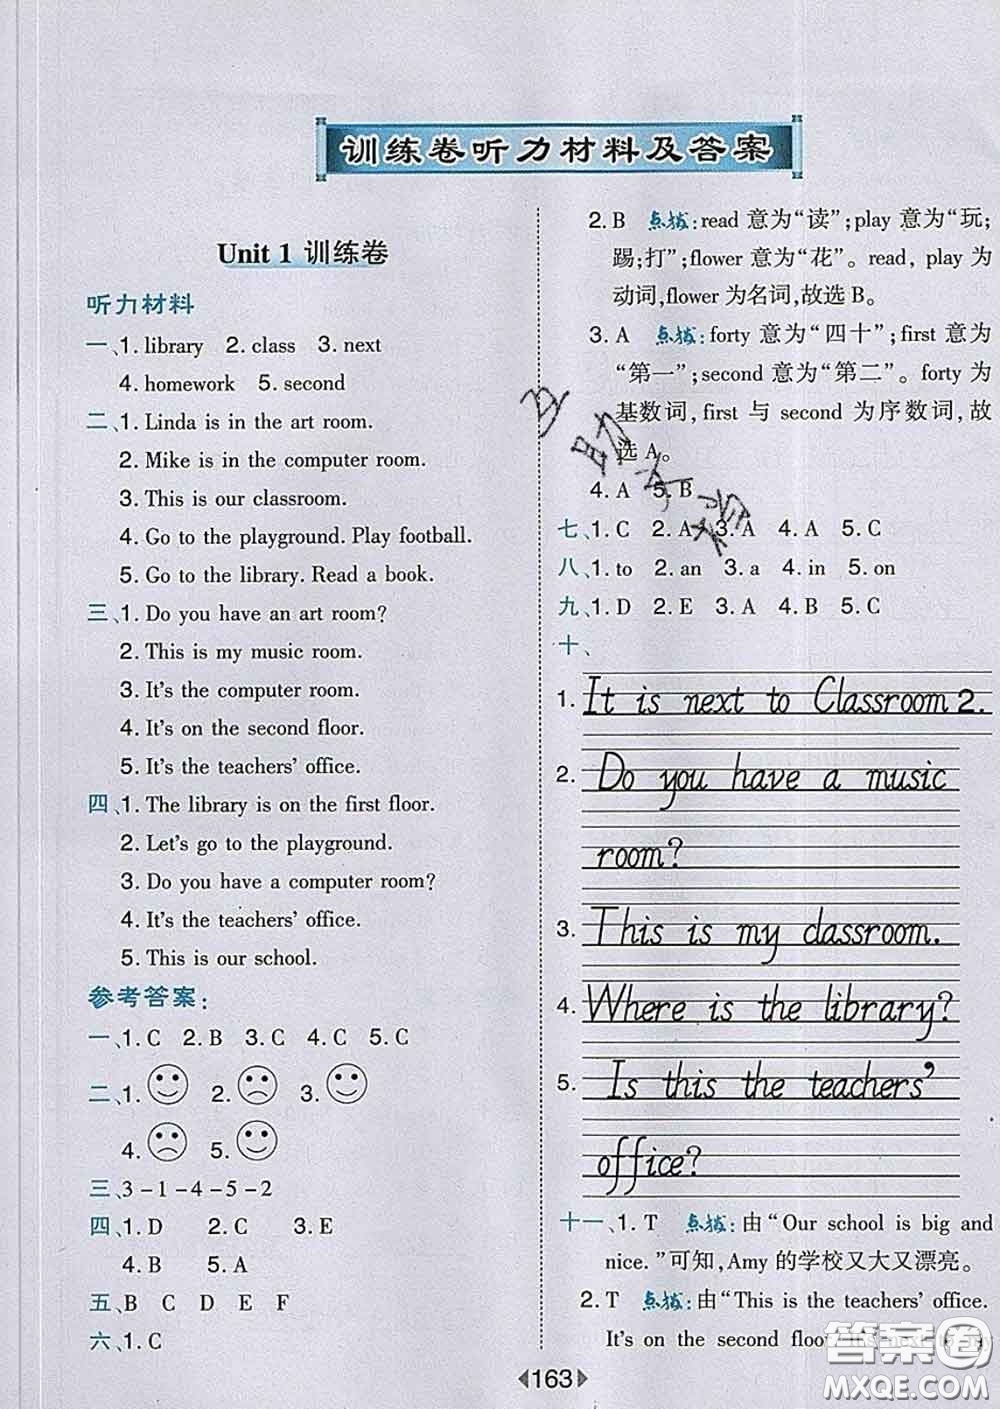 训练卷听力材料及答案
Unit 1 训练卷
听力材料
一、1. library 2. class 3. next
4. homework 5. second
二、1. Linda is in the art room.
2. Mike is in the computer room.
3. This is our classroom.
4. Go to the playground. Play football.
5. Go to the library. Read a book.
三、1. Do you have an art room?
2. This is my music room.
3. It's the computer room.
4. It's on the second floor.
5. It's the teachers' office.
四、1. The library is on the first floor.
2. Let's go to the playground.
3. Do you have a computer room?
4. It's the teachers' office.
5. This is our school.
参考答案:
一、1. C 2. B 3. C 4. C 5. C
二、1. 2. 3.
4. 5.
三、3-1-4-5-2
四、1. D 2. C 3. E
4. B 5. A
五、B C D E F
六、1. C
2. B 点拨:read 意为“读”;play 意为“玩;
踢;打”;flower 意为“花”。read, play 为
动词,flower 为名词,故选 B。
3. A 点拨:forty 意为“四十”;first 意为
“第一”;second 意为“第二”。forty 为
基数词,first 与 second 为序数词,故
选 A。
4. A 5. B
七、1. C 2. A 3. A 4. A 5. C
八、1. to 2. an 3. a 4. in 5. on
九、1. D 2. E 3. A 4. B 5. C
十、
1. It is next to Classroom 2.
2. Do you have a music
room?
3. This is my classroom.
4. Where is the library?
5. Is this the teachers'
office?
十一、1. T 点拨:由“Our school is big and
nice.”可知,Amy 的学校又大又漂亮。
2. T 点拨:由“This is the teachers' office.
It's on the second floor.
163
答案圈
MXQE.COM